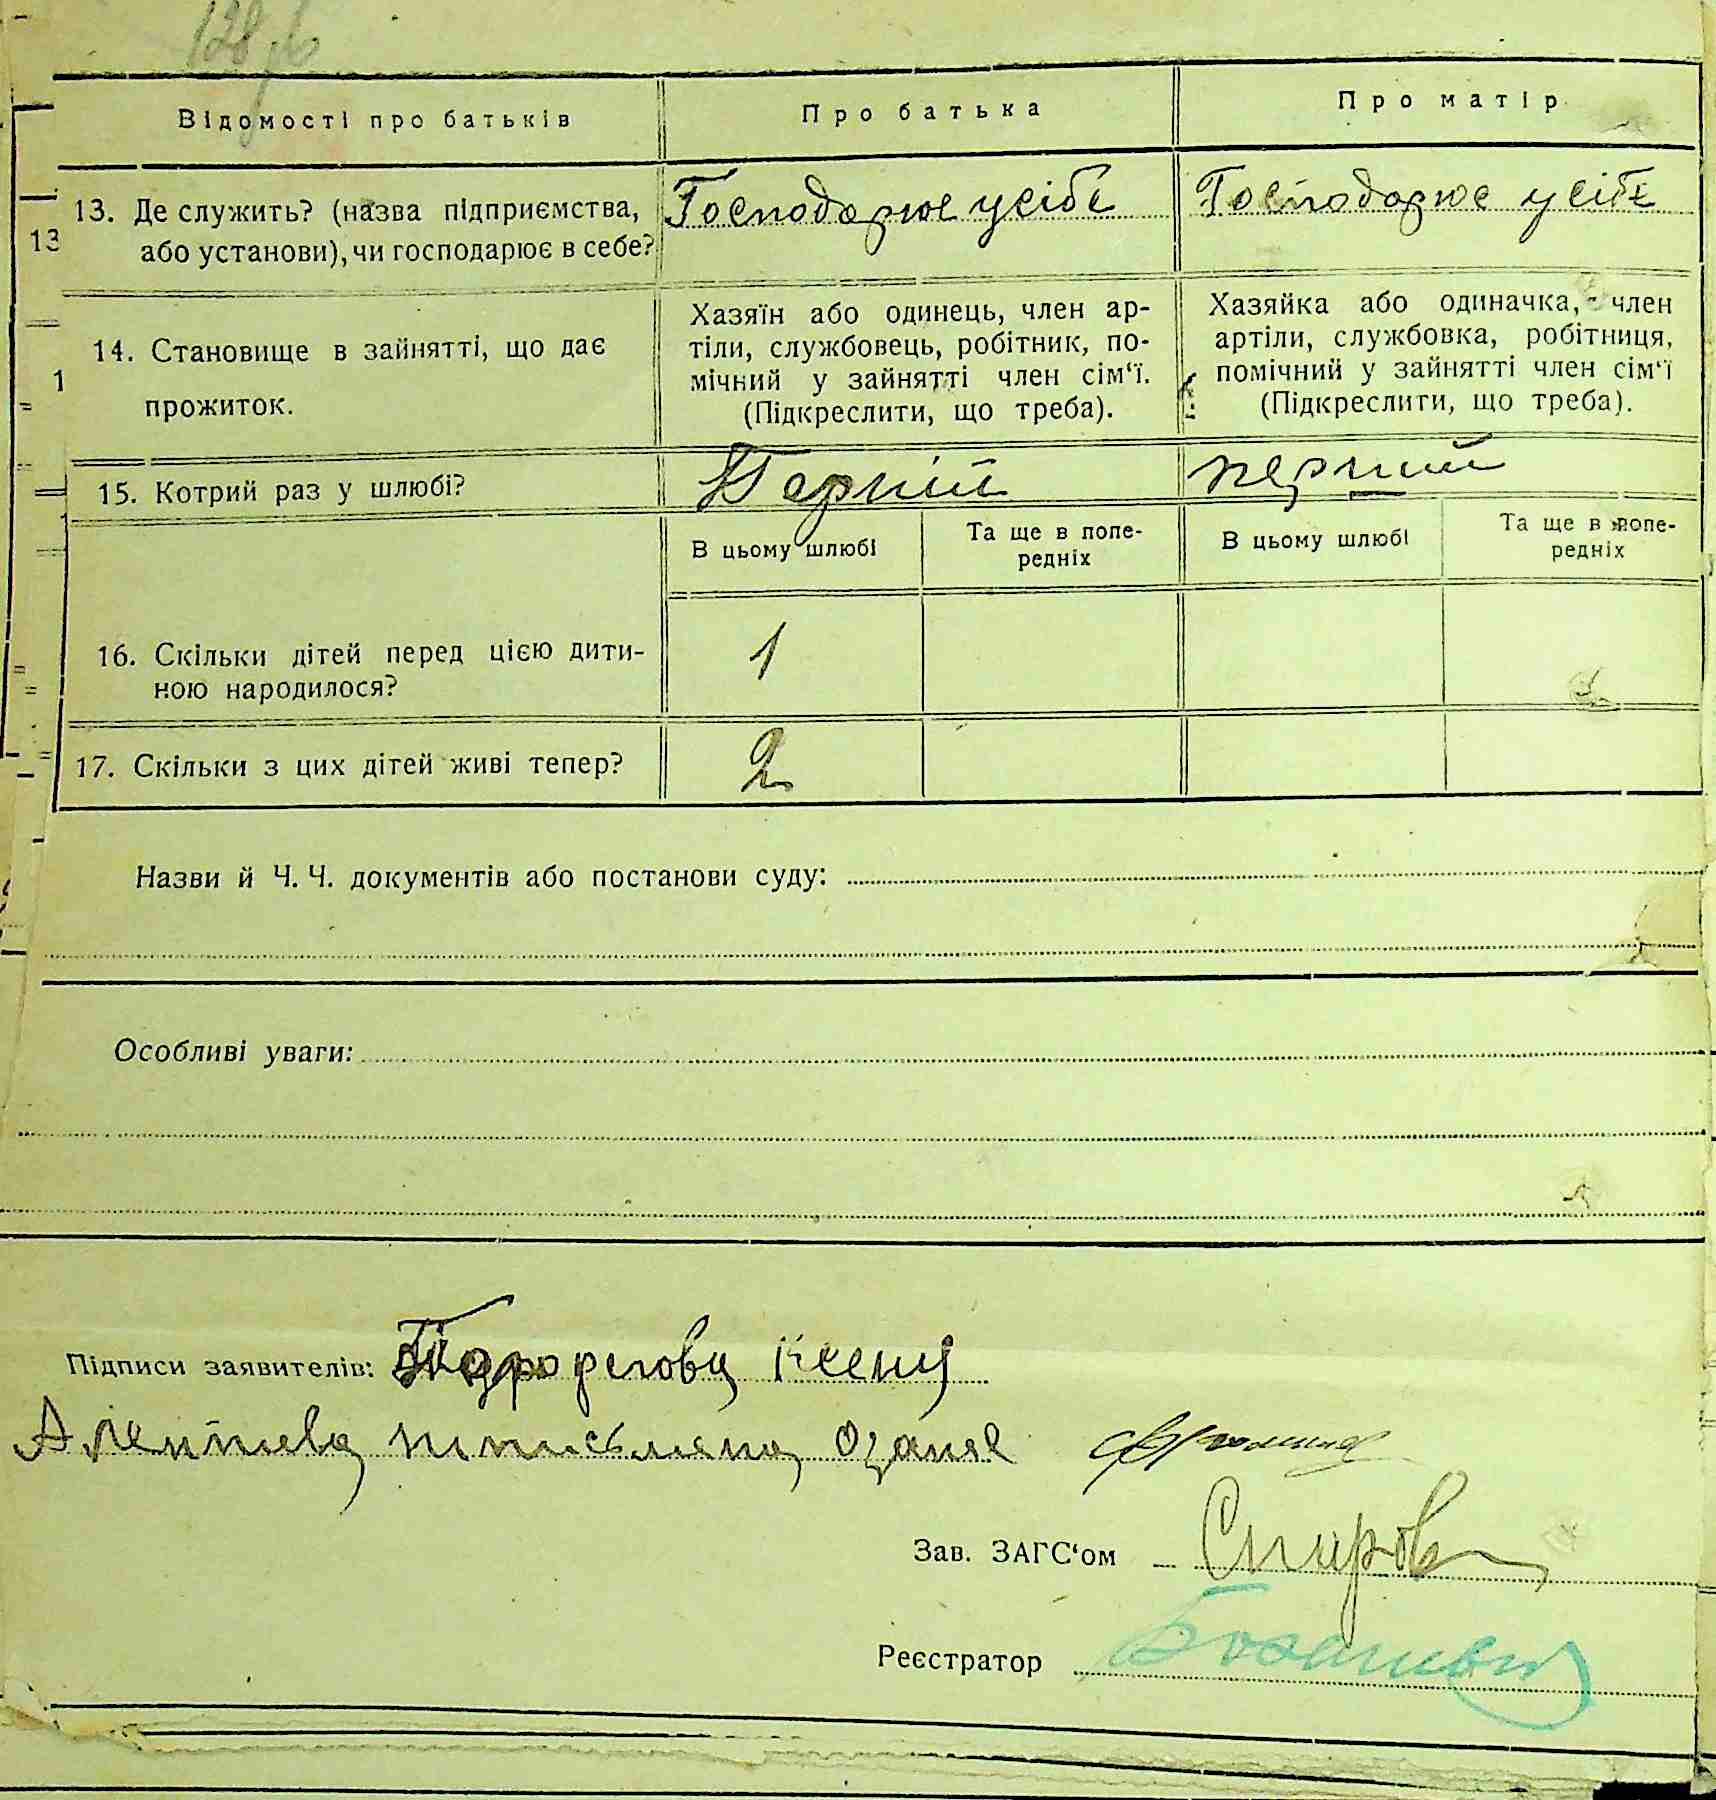 128
Відомості про батьків
Про батька
Про матір
13. Де служить? (назва підприємства,
або установи), чи господарює в себе?
Господарює у сібе
Господарює у сібе
13
14. Становище в зайнятті, що дає
прожиток.
Хазяїн або одинець, член ар-
тіли, службовець, робітник, по-
мічний у зайнятті член сім‘ї.
(Підкреслити, що треба).
Хазяйка або одиначка, член
артіли, службовка, робітниця,
помічний у зайнятті член сім‘ї
(Підкреслити, що треба).
1
15. Котрий раз у шлюбі?
Перний
перший
В цьому шлюбі
Та ще в попе-
редніх
В цьому шлюбі
Та ще в попе-
редніх
16. Скільки дітей перед цією дити-
ною народилося?
1
17. Скільки з цих дітей живі тепер?
2
Назви й Ч. Ч. документів або постанови суду:
Особливі уваги:
Підписи заявителів:
Зав. ЗАГС‘ом
Реєстратор